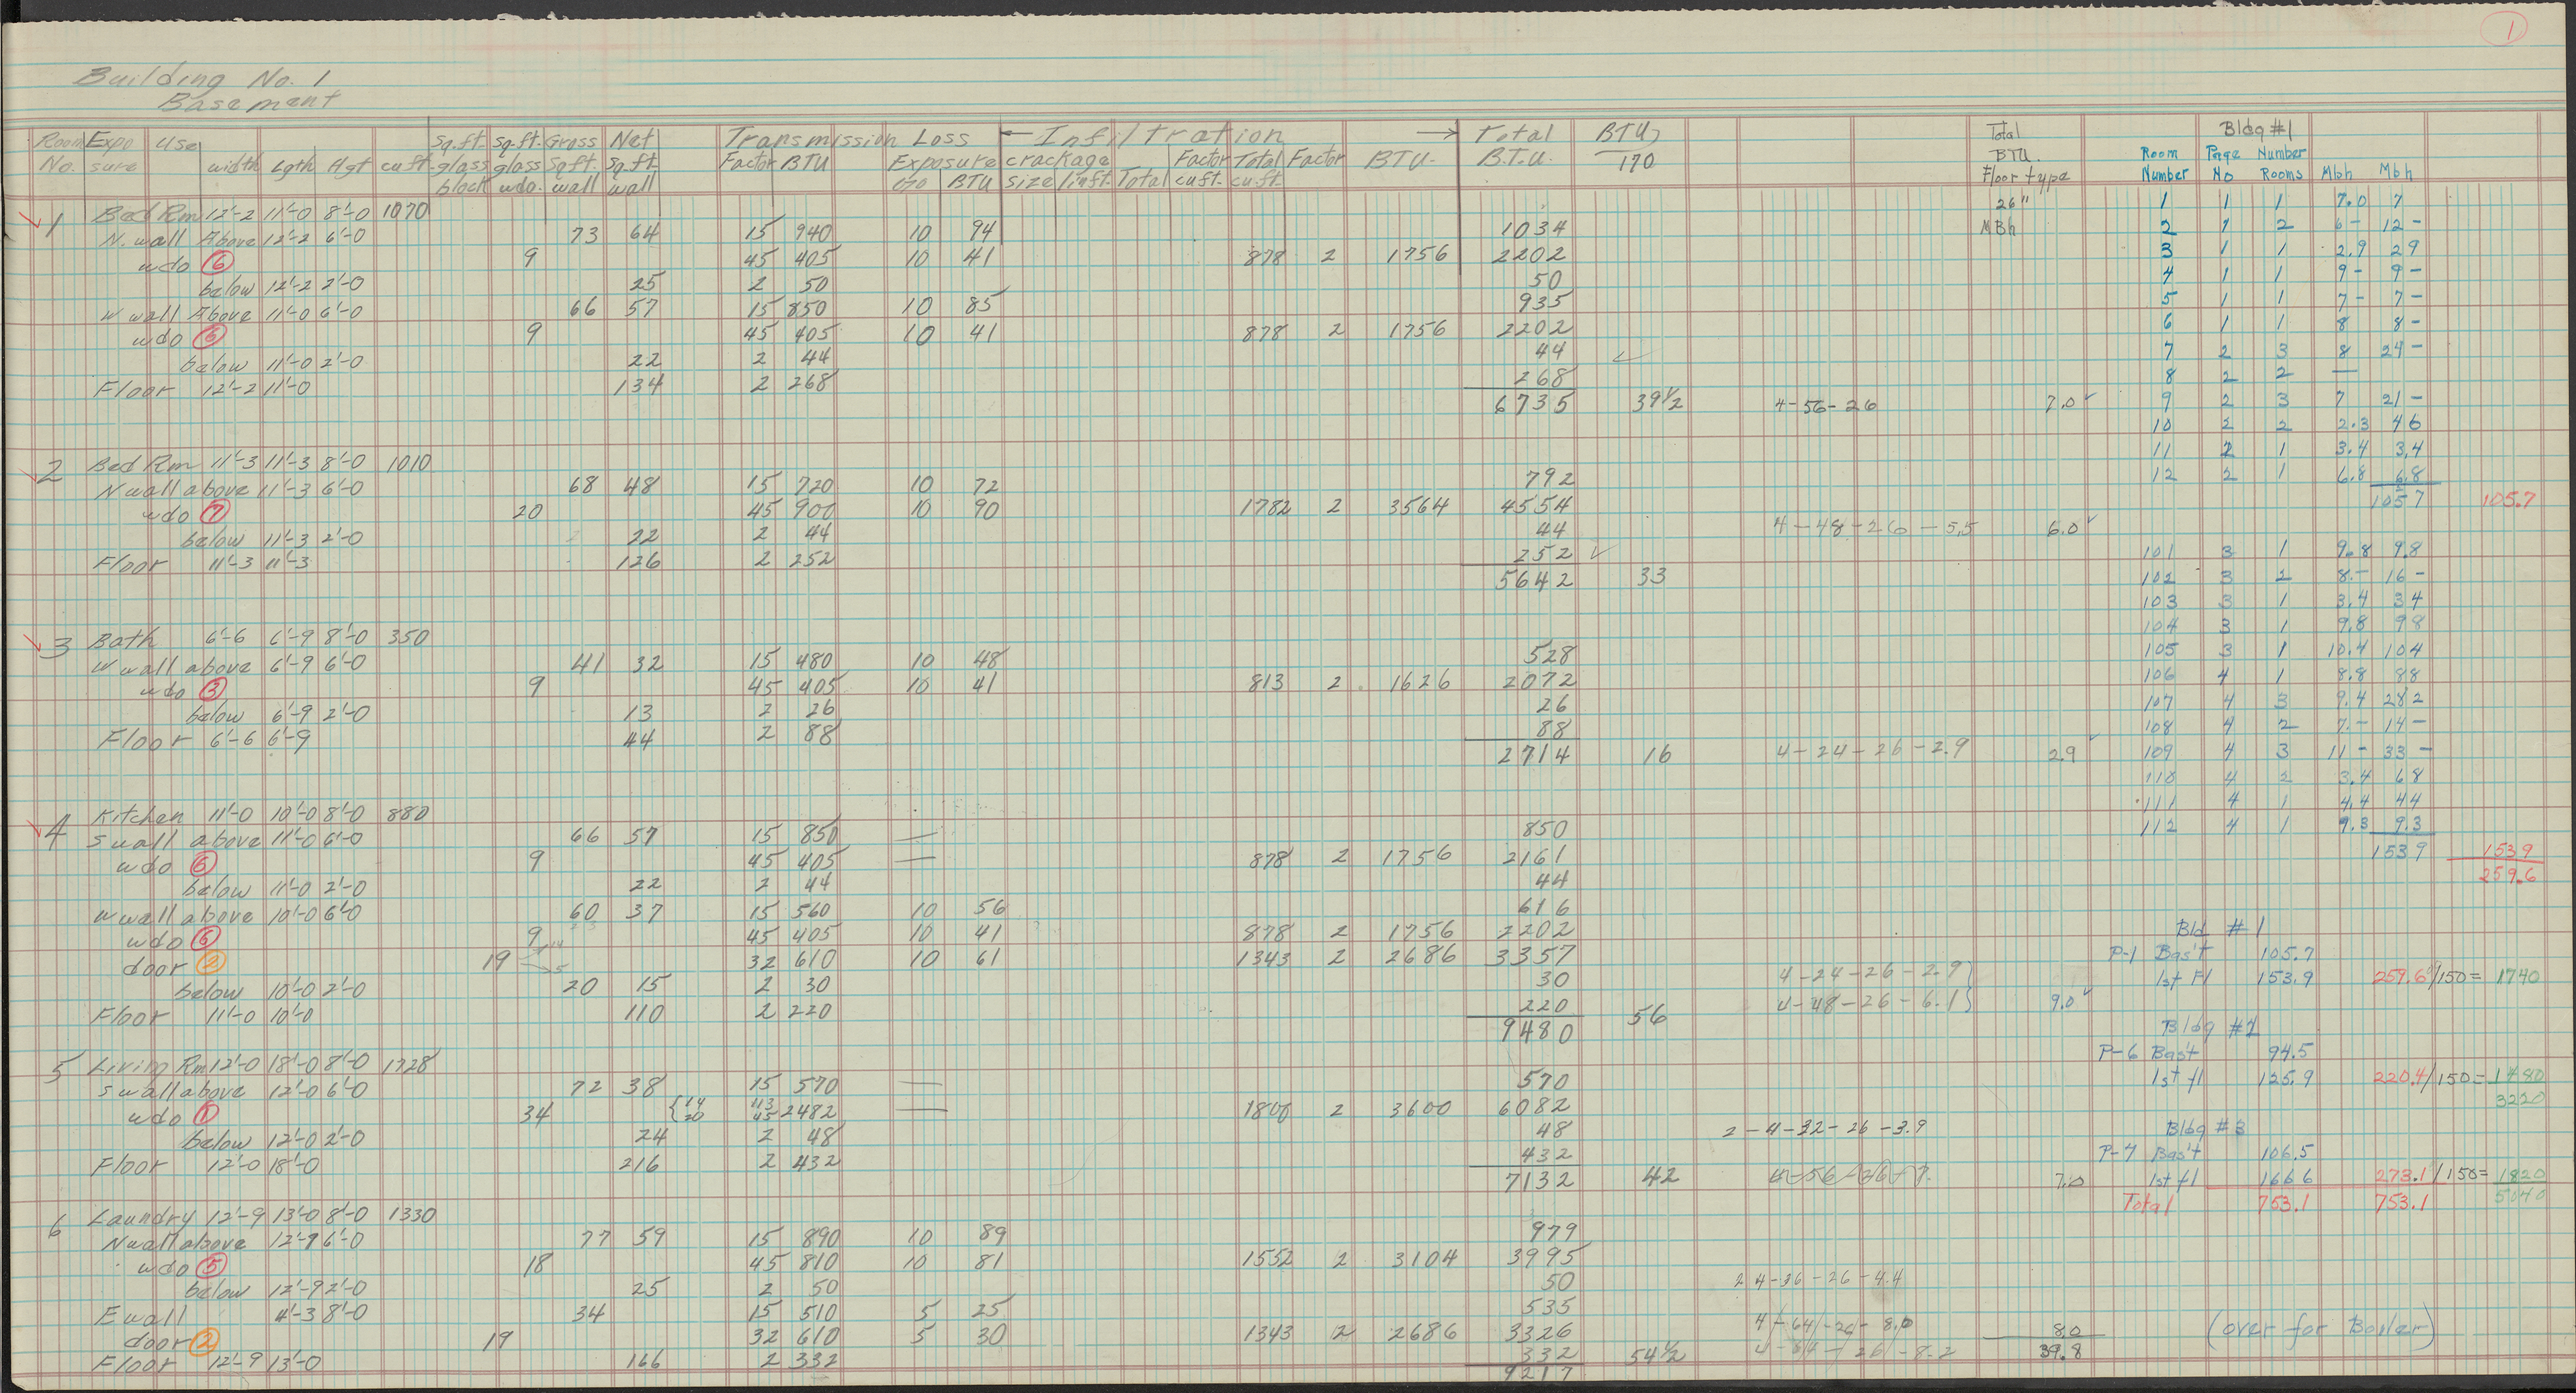 1
Building No. 1
Basement
Room No. Expo sure Use width Lgth Hgt cu ft. Sq. ft. glass block Sq. ft. glass wdo. Gross Sq. ft. wall Net Sq. ft. wall Transmission Loss Factor BTU Exposure % BTU ← Infiltration → crackage size linft. Total Factor cu ft. Total cu. ft. Factor BTU. Total B.T.U. BTU/170 Total BTU. Floor type
1 Bed Rm 12'-2 11'-0 8'-0 1070 26"
N. wall Above 12'-2 6'-0 73 64 15 940 10 94 1034 MBh
wdo 6 9 45 405 10 41 878 2 1756 2202
below 12'-2 2'-0 25 2 50 50
W wall Above 11'-0 6'-0 66 57 15 850 10 85 935
wdo 6 9 45 405 10 41 878 2 1756 2202
below 11'-0 2'-0 22 2 44 44
Floor 12'-2 11'-0 134 2 268 268
6735 39½ 4-56-26 7.0
2 Bed Rm 11'-3 11'-3 8'-0 1010
N wall above 11'-3 6'-0 68 48 15 720 10 72 792
wdo 7 20 45 900 10 90 1782 2 3564 4554
below 11'-3 2'-0 22 2 44 44 4-48-26-5.5 6.0
Floor 11'-3 11'-3 126 2 252 252
5642 33
3 Bath 6'-6 6'-9 8'-0 350
W wall above 6'-9 6'-0 41 32 15 480 10 48 528
wdo 3 9 45 405 10 41 813 2 1626 2072
below 6'-9 2'-0 13 2 26 26
Floor 6'-6 6'-9 44 2 88 88
2714 16 4-24-26-2.9 2.9
4 Kitchen 11'-0 10'-0 8'-0 880
S wall above 11'-0 6'-0 66 57 15 850 — 850
wdo 6 9 45 405 — 878 2 1756 2161
below 11'-0 2'-0 22 2 44 44
W wall above 10'-0 6'-0 60 37 15 560 10 56 616
wdo 6 9 45 405 10 41 878 2 1756 2202
door 2 19 14 5 32 610 10 61 1343 2 2686 3357
below 10'-0 2'-0 20 15 2 30 30 4-24-26-2.9
Floor 11'-0 10'-0 110 2 220 220 4-48-26-6.1 9.0
9480 56
5 Living Rm 12'-0 18'-0 8'-0 1728
S wall above 12'-0 6'-0 72 38 15 570 — 570
wdo 1 34 14 20 113 45 2482 — 1800 2 3600 6082
below 12'-0 2'-0 24 2 48 48 2-4-32-26-3.9
Floor 12'-0 18'-0 216 2 432 432
7132 42 4-56-26-7. 7.0
6 Laundry 12'-9 13'-0 8'-0 1330
N wall above 12'-9 6'-0 77 59 15 890 10 89 979
wdo 5 18 45 810 10 81 1552 2 3104 3995
below 12'-9 2'-0 25 2 50 50 2 4-36-26-4.4
E wall 4'-3 8'-0 34 15 510 5 25 535
door 2 19 32 610 5 30 1343 2 2686 3326 4-64-26-8.0 8.0
Floor 12'-9 13'-0 166 2 332 332 54½ 39.8
9217
Bldg #1
Room Number Page No Number Rooms Mbh Mbh
1 1 1 7.0 7
2 1 2 6- 12-
3 1 1 2.9 29
4 1 1 9- 9-
5 1 1 7- 7-
6 1 1 8 8-
7 2 3 8 24-
8 2 2 —
9 2 3 7 21-
10 2 2 2.3 46
11 2 1 3.4 3.4
12 2 1 6.8 6.8
1057 105.7
101 3 1 9.8 9.8
102 3 2 8.- 16-
103 3 1 3.4 34
104 3 1 9.8 98
105 3 1 10.4 104
106 4 1 8.8 88
107 4 3 9.4 282
108 4 2 7.- 14-
109 4 3 11- 33-
110 4 2 3.4 68
111 4 1 4.4 44
112 4 1 9.3 9.3
1539 1539
259.6
Bld #1
P-1 Bas't 105.7
1st Fl 153.9 259.6/150= 1740
Bldg #2
P-6 Bas't 94.5
1st fl 125.9 220.4/150= 1480
3220
Bldg #3
P-7 Bas't 106.5
1st fl 166.6 273.1/150= 1820
Total 753.1 753.1 5040
(over for Boiler)